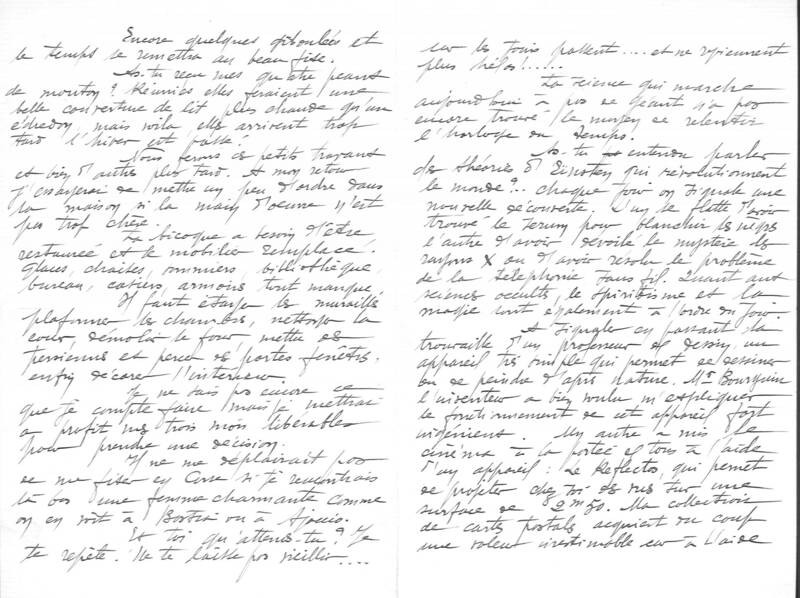 Encore quelques giboulées et
le temps se remettra au beau fixe.
As-tu reçu mes quatre peaux
de mouton? Réunies elles feraient une
belle couverture de lit plus chaude qu'un
édredon, mais voilà, elles arrivent trop
tard l'hiver est passé!
Nous ferons ces petits travaux
et bien d'autres plus tard. A mon retour
j'essayerai de mettre un peu d'ordre dans
la maison si la main d'oeuvre n'est
pas trop chère.
La bicoque a besoin d'être
restaurée et le mobilier remplacé.
Glaces, chaises, sommiers, bibliothèque
bureau, casiers, armoires tout manque.
Il faut étayer les murailles
plafonner les chambres, nettoyer la
cour, démolir le four, mettre des
persiennes et percer des portes fenêtres.
enfin décorer l'intérieur.
Je ne sais pas encore ce
que je compte faire mais je mettrai
à profit mes trois mois libérables
pour prendre une décision.
Il ne me déplairait pas
de me fixer en Corse si je rencontrais
là bas une femme charmante comme
on en voit à Bastia ou à Ajaccio.
Et toi qu'attends-tu? Je
te repète. Ne te laisse pas vieillir....
car les jours passent.... et ne reviennent
plus hélas!.....
La science qui marche
aujourd'hui à pas de géant n'a pas
encore trouvé le moyen de ralentir
l'horloge du temps.
As-tu entendu parler
des théories d'Einstein qui révolutionnent
le monde?.. Chaque jour on signale une
nouvelle découverte. L'un se flatte d'avoir
trouvé le serum pour blanchir les nègres
l'autre d'avoir dévoilé le mystère des
rayons X ou d'avoir résolu le problème
de la téléphonie sans fil. Quant aux
sciences occultes, le spiritisme et la
magie sont également à l'ordre du jour.
A signaler en passant la
trouvaille d'un professeur de dessin, un
appareil très simple qui permet de dessiner
ou de peindre d'après nature. Mr Bourguin
l'inventeur a bien voulu m'expliquer
le fonctionnement de cet appareil fort
ingénieux. Un autre a mis le
cinéma à la portée de tous à l'aide
d'un appareil: Le Reflectos, qui permet
de projeter chez toi des vues sur une
surface de 2m50. Ma collection
de cartes postales acquiert du coup
une valeur inestimable car à l'aide